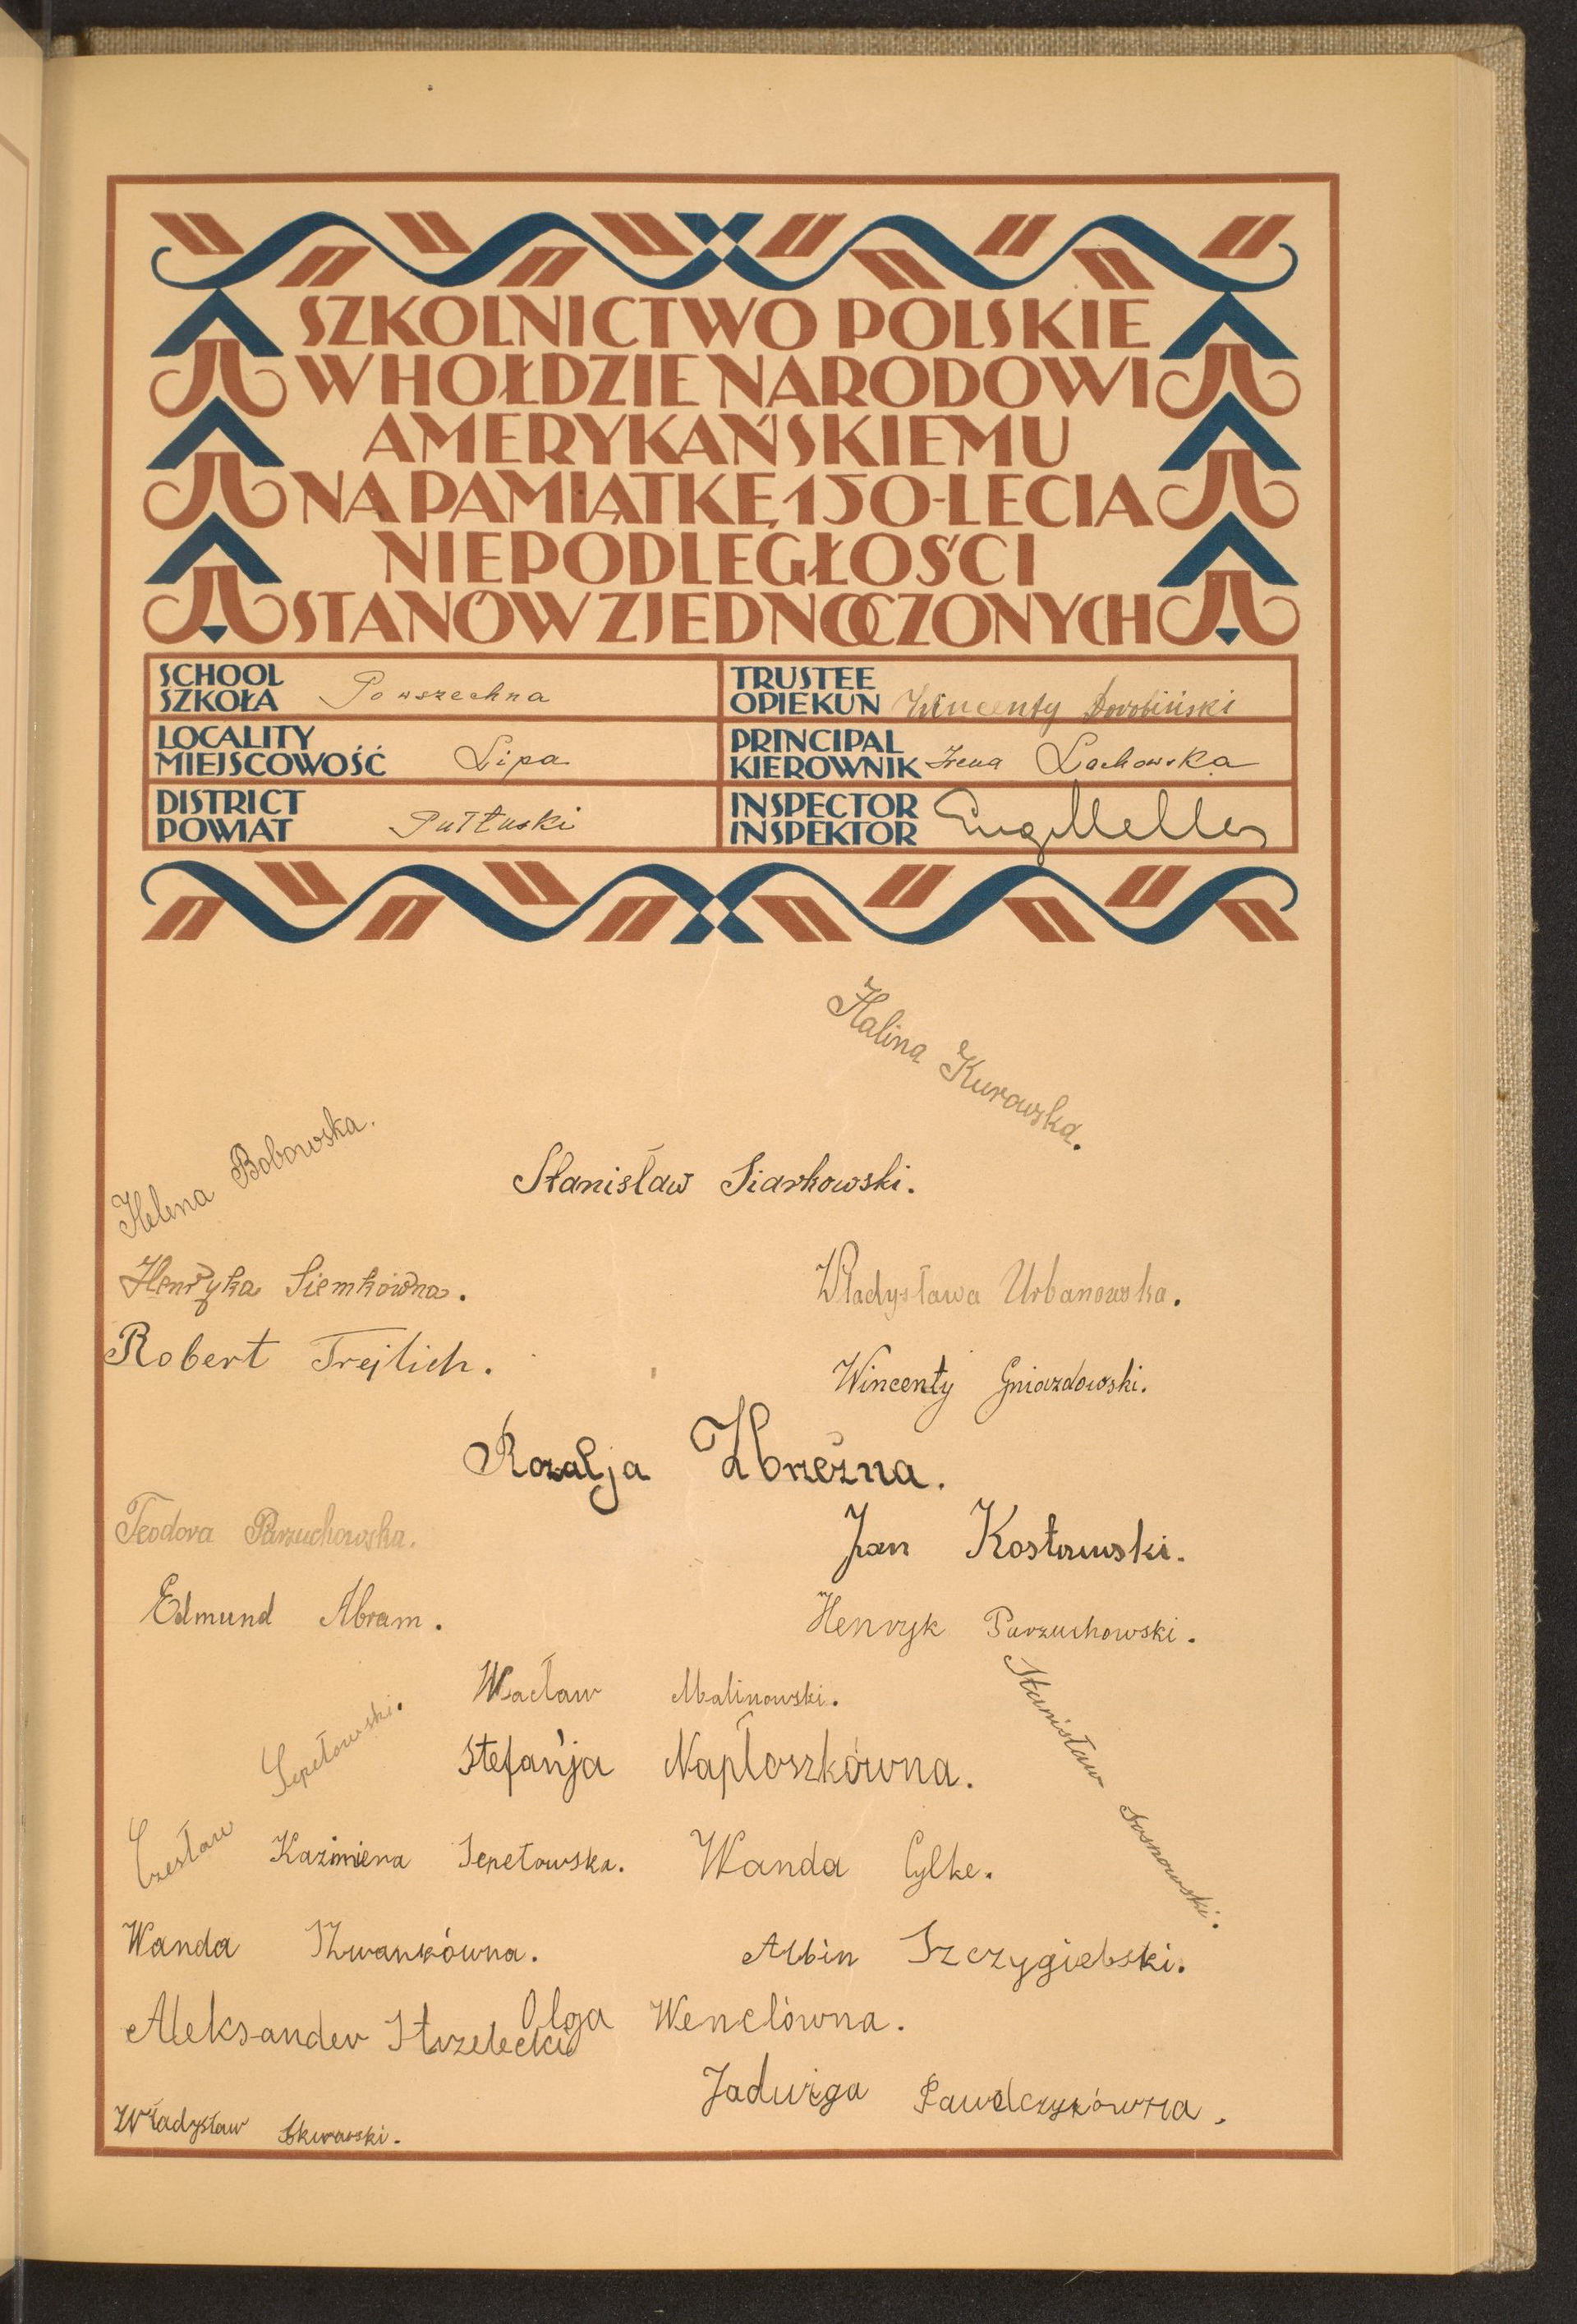 SZKOLNICTWO POLSKIE
W HOŁDZIE NARODOWI
AMERYKAŃSKIEMU
NA PAMIĄTKĘ 150-LECIA
NIEPODLEGŁOŚCI
STANÓW ZJEDNOCZONYCH
SCHOOL
SZKOŁA Powszechna
TRUSTEE
OPIEKUN Wincenty
LOCALITY
MIEJSCOWOŚĆ Lipa
PRINCIPAL
KIEROWNIK Irena Lachowska
DISTRICT
POWIAT Pułtuski
INSPECTOR
INSPEKTOR
Halina Kurowska.
Helena Bobowska.
Stanisław Siarkowski.
Henryka Siemkówna.
Władysława Urbanowska.
Robert Trejlich.
Wincenty Gniazdowski.
Rozalja Zbrzeźna.
Teodora Parzuchowska.
Jan Kostowski.
Edmund Abram.
Henryk Parzuchowski.
Wacław Malinowski.
Stanisław Sosnowski.
Czesław Sepełowski.
Stefanja Napłoszkówna.
Kazimiera Sepełowska.
Wanda Cylke.
Wanda
Albin Szczygielski.
Olga Wenclówna.
Aleksander Strzelecki
Jadwiga Pawelczykówna.
Władysław Skwarski.